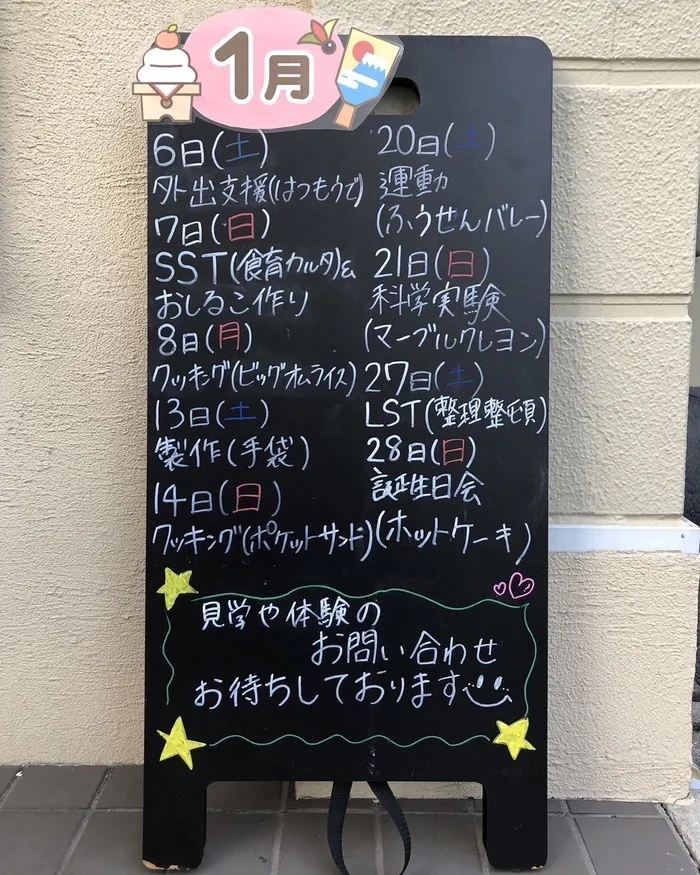 1月
6日(土)
外出支援(はつもうで)
7日(日)
SST(食育カルタ)&
おしるこ作り
8日(月)
クッキング(ビッグオムライス)
13日(土)
製作(手袋)
14日(日)
クッキング(ポケットサンド)
20日(土)
運動
(ふうせんバレー)
21日(日)
科学実験
(マーブルクレヨン)
27日(土)
LST(整理整頓)
28日(日)
誕生日会
(ホットケーキ)
見学や体験の
お問い合わせ
お待ちしております